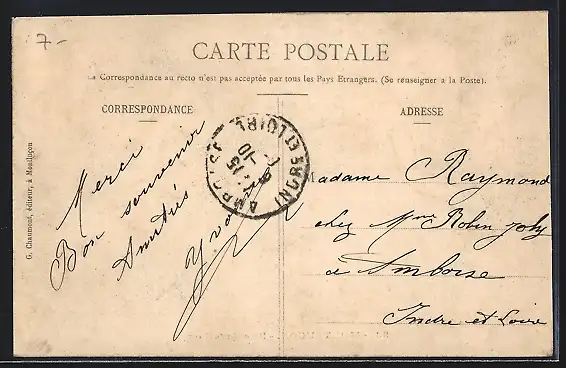 7-
CARTE POSTALE
La Correspondance au recto n'est pas acceptée par tous les Pays Etrangers. (Se renseigner à la Poste).
CORRESPONDANCE
ADRESSE
G. Chaumont, éditeur, à Montluçon
Merci
Bon souvenir
Amitiés
AMBOISE
INDRE ET LOIRE
Madame Raymond
chez Mme Robin
à Amboise
Indre et Loire